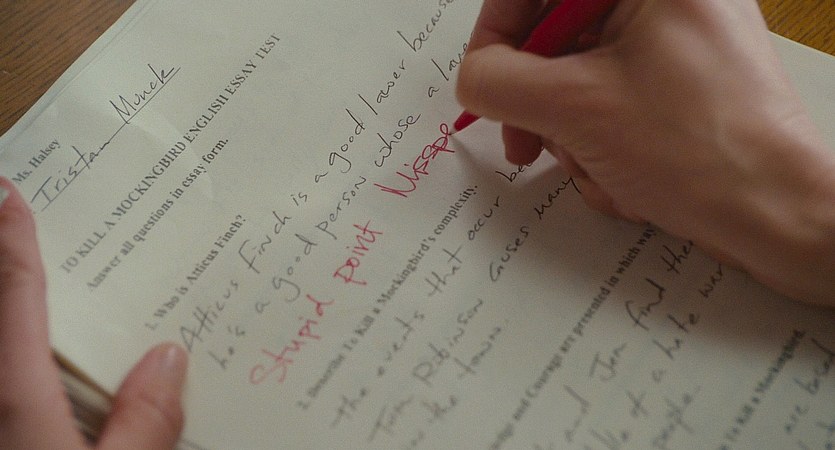 Ms. Halsey
Tristan Minck
TO KILL A MOCKINGBIRD ENGLISH ESSAY TEST
Answer all questions in essay form.
1. Who is Atticus Finch?
Atticus Finch is a good lawer because
he's a good person whose a
Stupid point Misspe
2. Describe To Kill a Mockingbird's complexity.
the events that occur
Tom Robinson causes many
in the town.
and Courage are presented in which
and Jem find
of a hate
people.
Kill a Mockingbird.
are